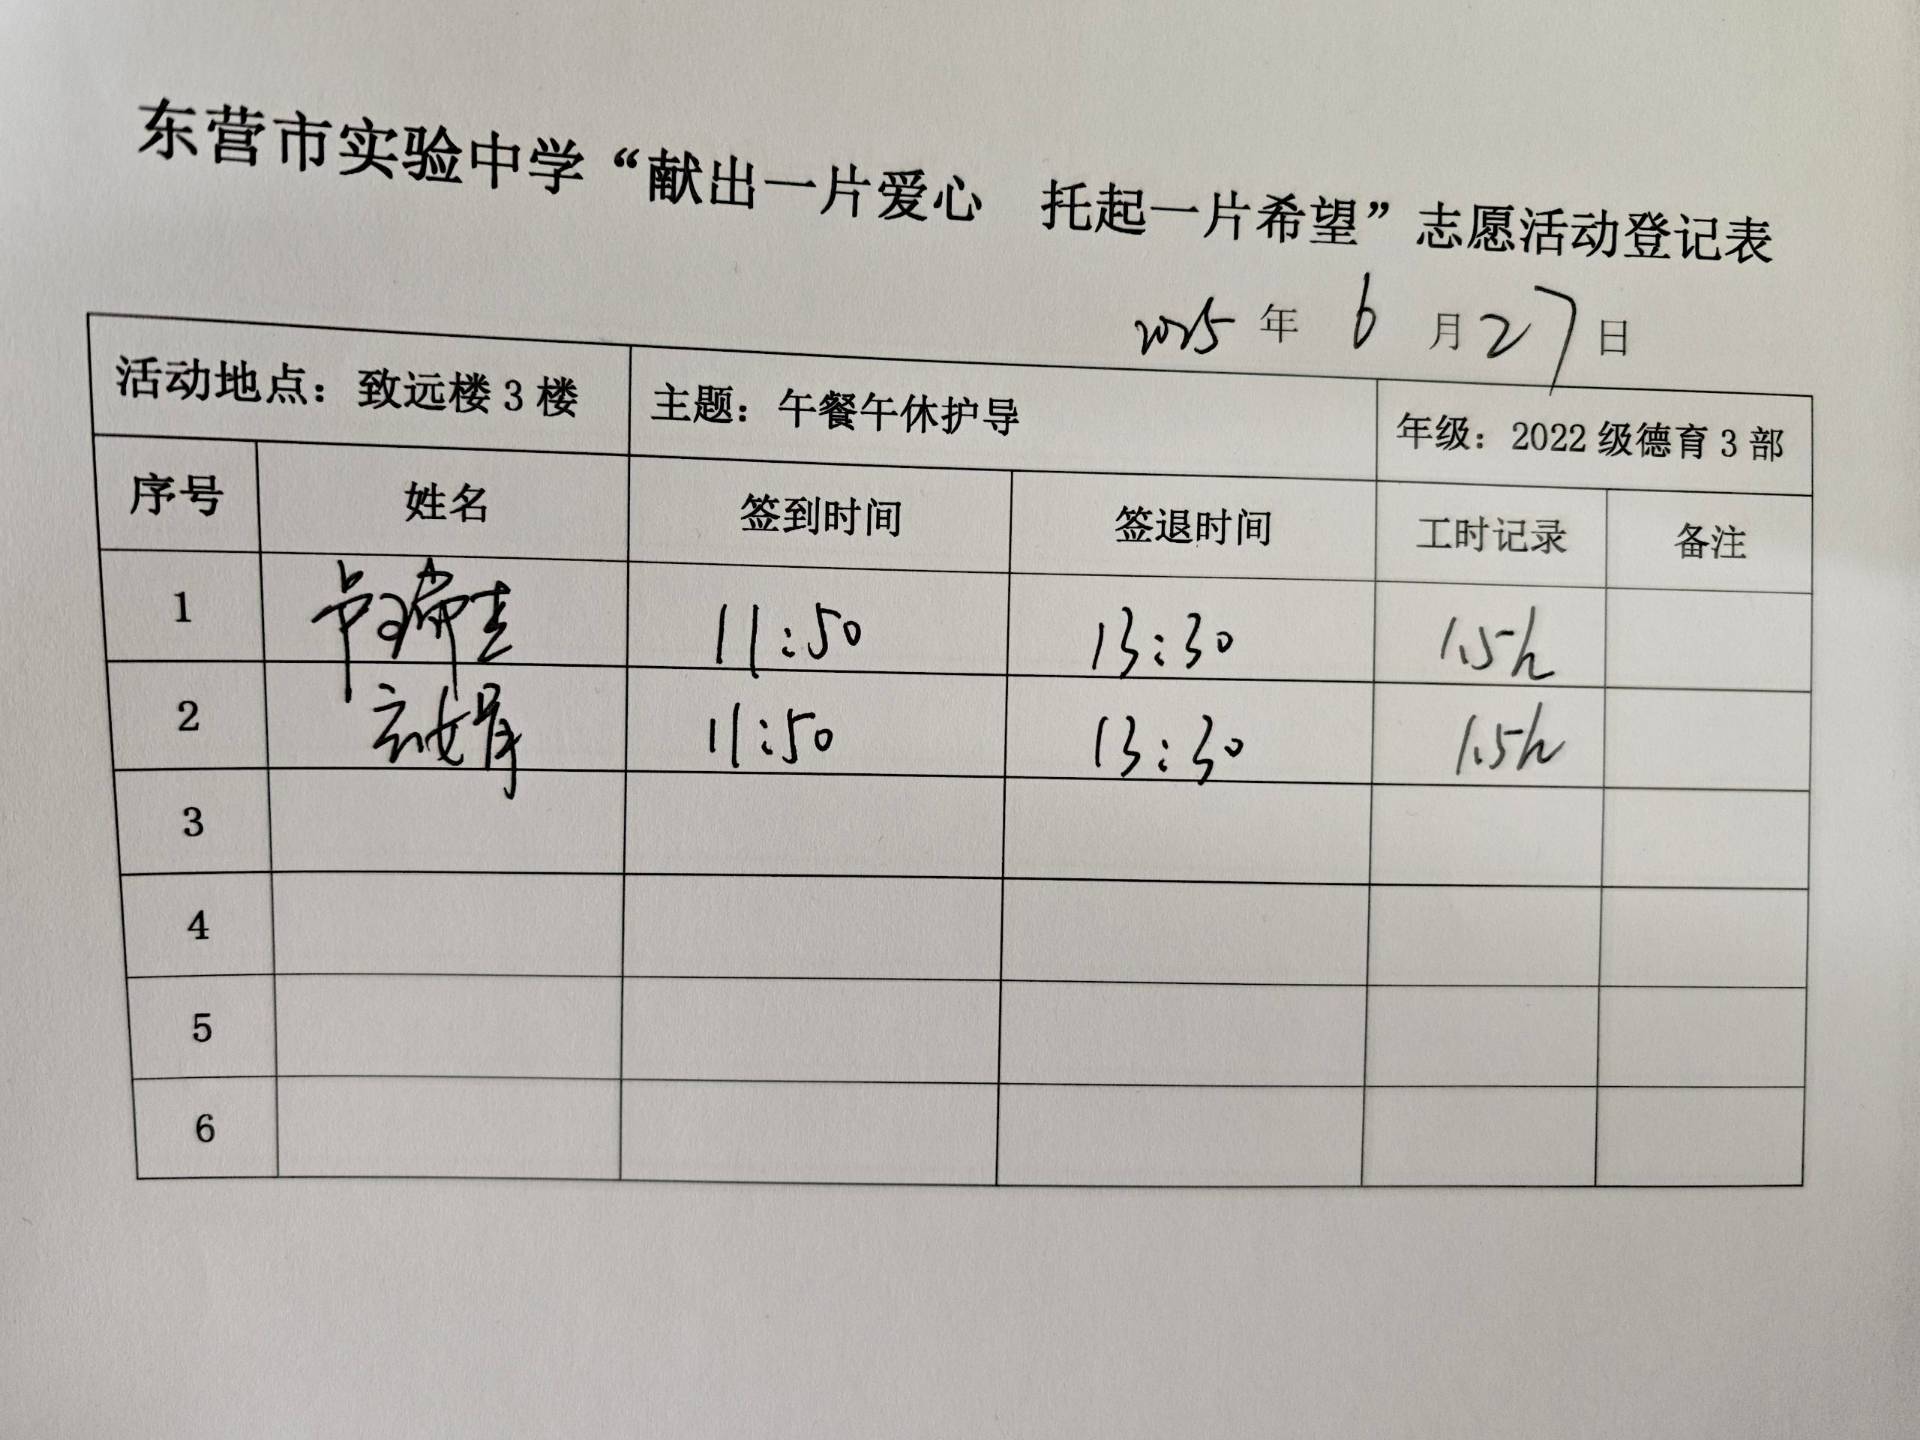 东营市实验中学“献出一片爱心 托起一片希望”志愿活动登记表
2025 年 6 月 27 日
活动地点：致远楼 3 楼 主题：午餐午休护导 年级：2022 级德育 3 部
序号 姓名 签到时间 签退时间 工时记录 备注
1 11:50 13:30 1.5h
2 11:50 13:30 1.5h
3
4
5
6